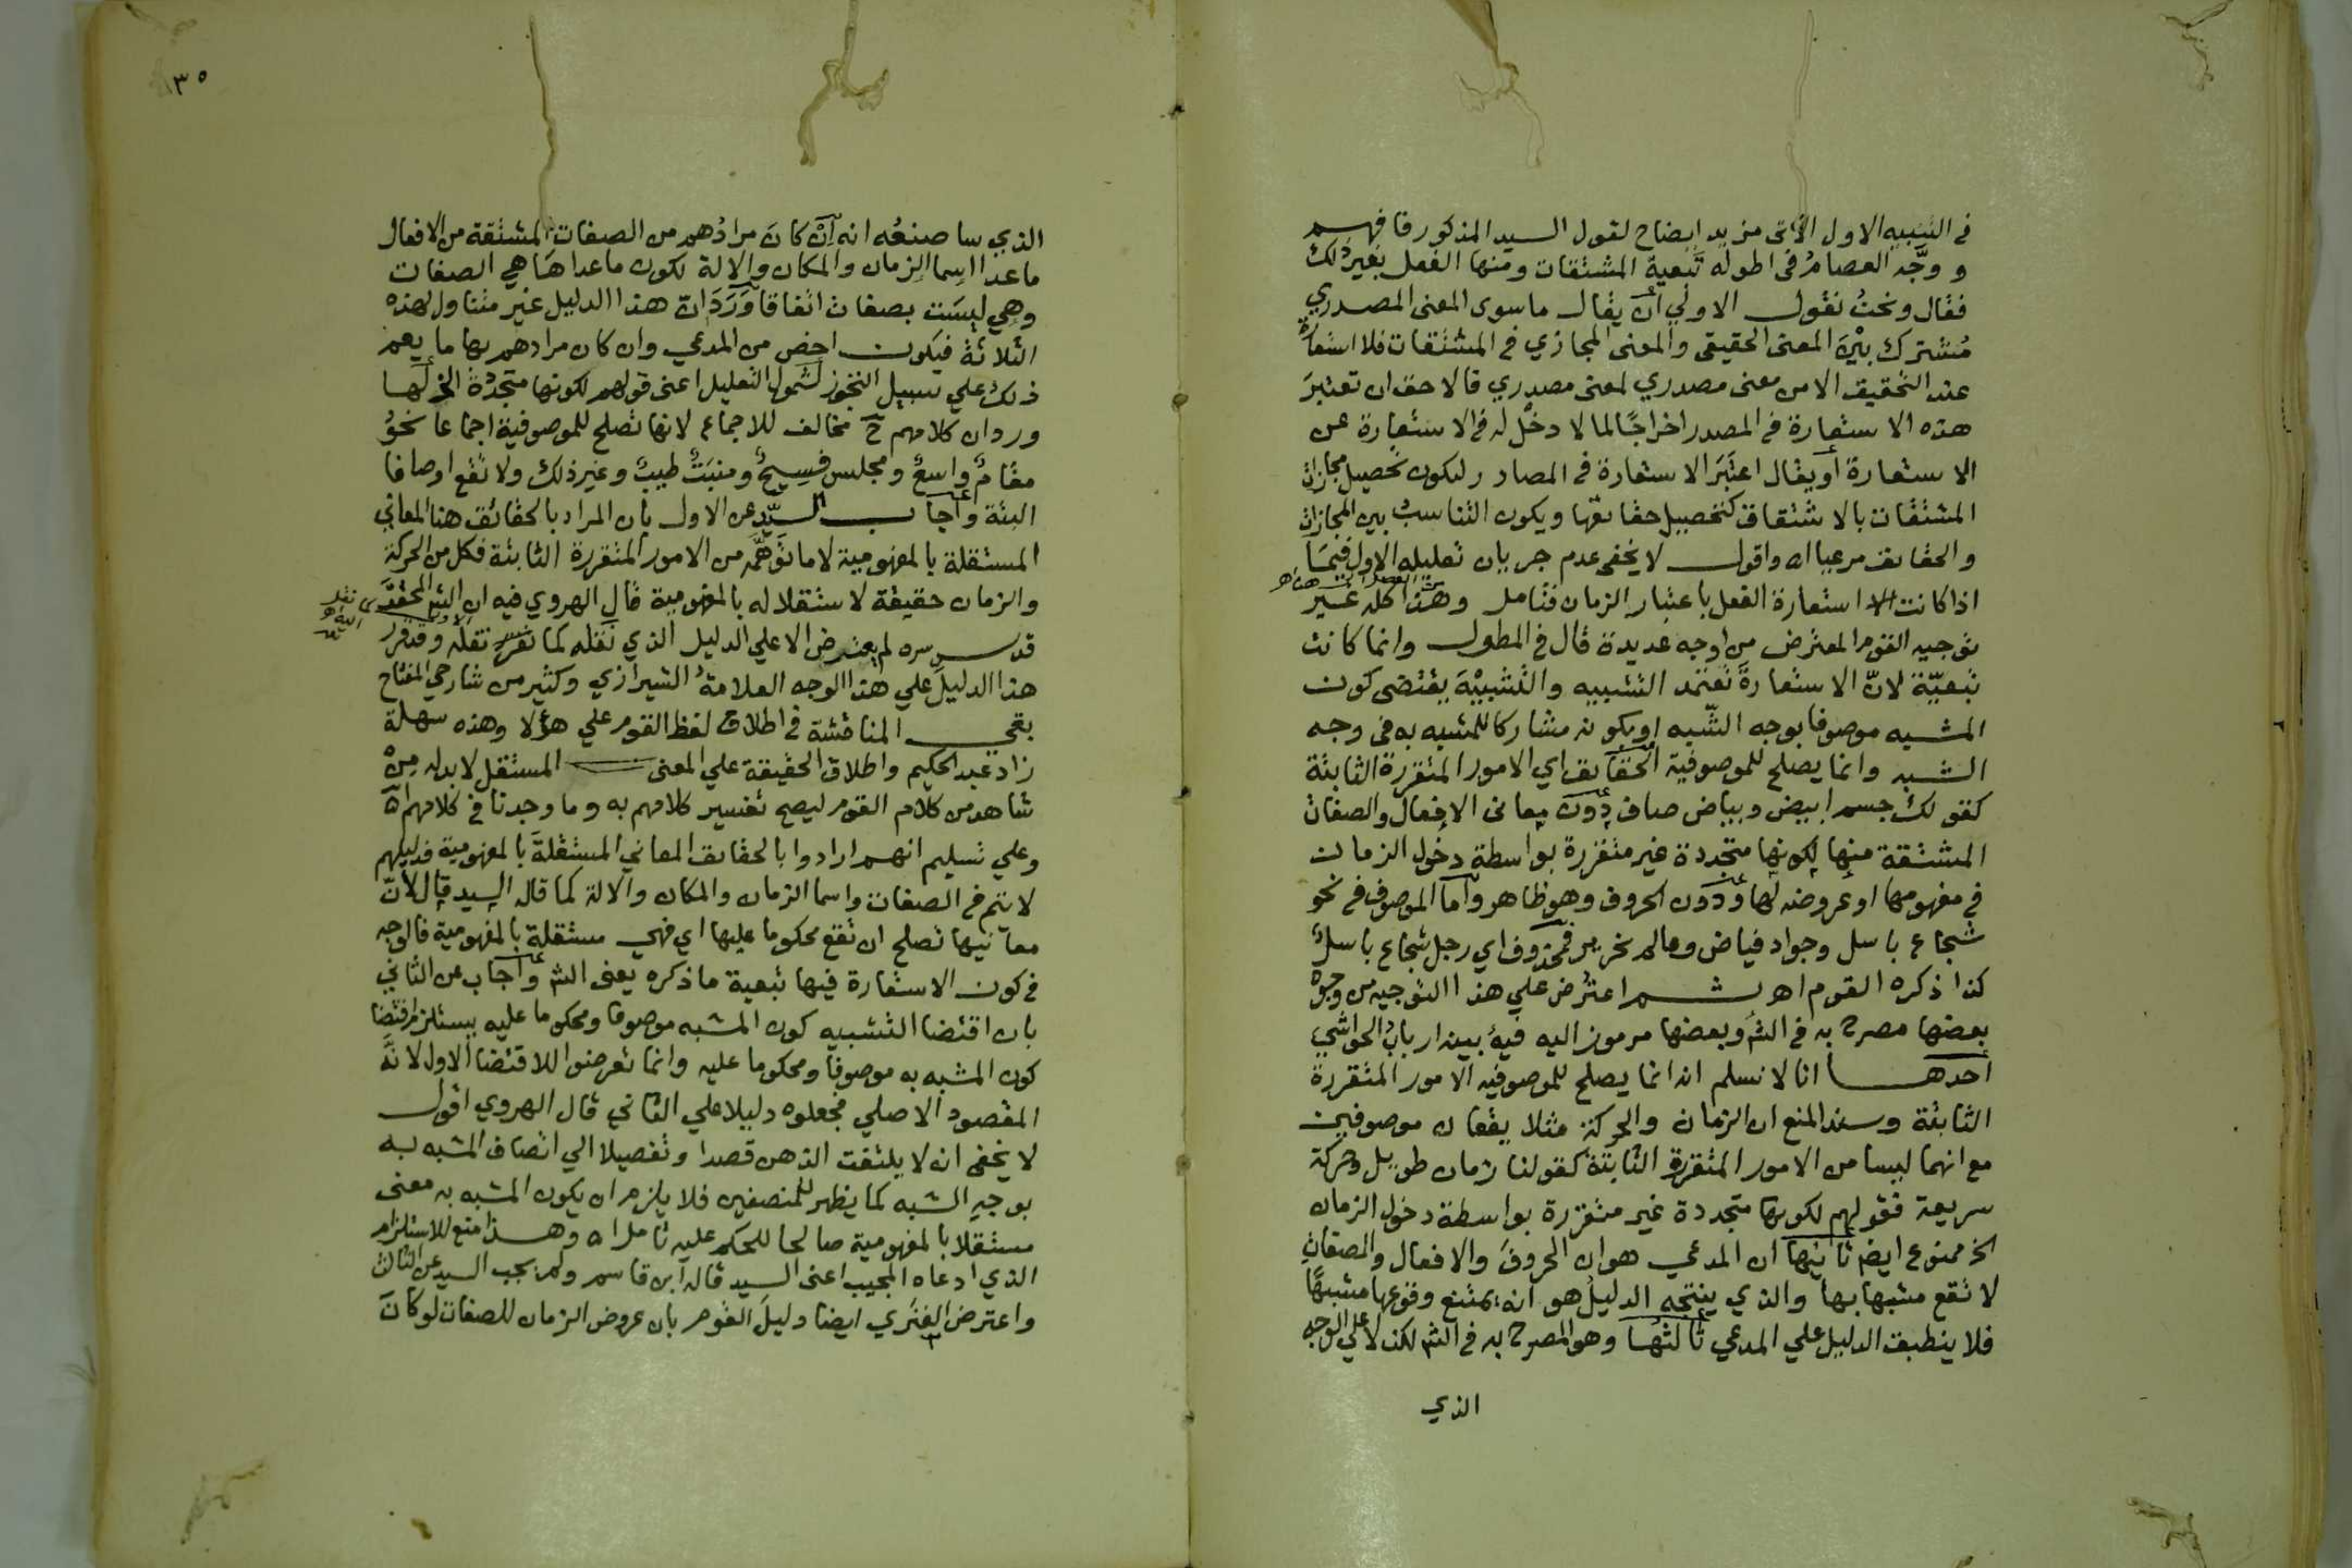 في التنبيه الاول الآتى مزيد ايضاح لقول السيد المذكور فافهم
ووجّه العصامُ فى اطوله تَبَعية المشتقات ومنها الفعل بغير ذلك
فقال ونحنُ نقول الاولي أن يقال ما سوى المعنى المصدري
مُشترك بيْن المعنى الحقيقى والمعنى المجازي في المشتقات فلا استعارة
عند التحقيق الا من معنى مصدري لمعنى مصدري فالاحق ان تعتبرَ
هذه الاستعارة في المصدر اخراجًا لما لا دخل له في الاستعارة عن
الاستعارة أو يقال اعتَبَرَ الاستعارة في المصادر ليكون تحصيل مجازات
المشتقات بالاشتقاق كتحصيل حقائقها ويكون التناسبُ بين المجازات
والحقايق مرعيا اه واقول لا يخفى عدم جريان تعليله الاول فيمَا
اذا كانت استعارة الفعل باعتبار الزمان فتامل وهذا كله غير
توجيه القوم المعترض من اوجه عديدة قال في المطول وانما كانت
تبعيّة لانّ الاستعارةَ تعتمد التشبيه والتشبيْهَ يقتضى كون
المشبه موصوفا بوجه الشّبه او بكونه مشاركا للمشبه به فى وجه
الشبه وانما يصلح للموصوفية الحقايق اي الامور المتقررة الثابتة
كقولك جسم ابيض وبياض صاف دون معانى الافعال والصفات
المشتقة منها لكونها متجددة غير متقررة بواسطة دخول الزمان
في مفهومها او عروضه لها ودون الحروف وهو ظاهر وأما الموصوف في نحو
شجاع باسل وجواد فياض وعالم نحرير فمحذوف اي رجل شجاع باسل
كذا ذكره القوم اهـ ثم اعتُرض علي هذا التوجيه من وجوهْ
بعضها مصرح به في الش وبعضها مرموز اليه فيه بينه اربابُ الحواشي
أحدها انا لا نسلم انه انما يصلح للموصوفيه الامور المتقررة
الثابتة وسند المنع ان الزمان والحركة مثلا يقعان موصوفين
مع انهما ليسا من الامور المتقررة الثابتة كقولنا زمان طويل وحركة
سريعة فقولهم لكونها متجددة غير متقررة بواسطة دخول الزمان
الخ ممنوع ايضا ثانيها ان المدعي هو ان الحروفَ والافعال والصفات
لا تقع مشبها بها والذي ينتجه الدليلُ هو انه يمتنع وقوعها مشبهًا
فلا ينطبق الدليل علي المدعي ثالثها وهو المصرح به في الش لكن لا علي الوجه
الذي
١٣٥
الذي سا صنعُه انه إن كانَ مرادُهم من الصفات المشتقة من الافعال
ما عدا اسما الزمان والمكان والالة لكون ما عداها هي الصفات
وهي ليسَت بصفات اتفاقا وَرَدَ ان هذا الدليل غير متناول لهذه
الثلاثة فيكون اخص من المدعي وان كان مرادهم بها ما يعم
ذلك علي سبيل التجوز لشمول التعليل اعنى قولهم لكونها متجددة الخ لها
ورد ان كلامهم ح مخالف للاجماع لانها تصلح للموصوفية اجماعا نحوُ
مقامٌ واسعٌ ومجلس فسِيحٌ ومنبَتٌ طيبٌ وغير ذلك ولا تقع اوصافا
البتة وأجاب السيّد عن الاول بان المراد بالحقائق هنا المعاني
المستقلة بالمفهومية لا ما توَهَّمه من الامور المتقررة الثابتة فكل من الحركة
والزمان حقيقة لاستقلاله بالمفهومية قال الهروي فيه ان الش المحقق
قدس سره لم يعترض الا علي الدليل الذي نقله كما نقله وقد قرر
هذا الدليلَ علي هذا الوجه العلامةُ الشيرازي وكثير من شارحي المفتاح
بقي المناقشة في اطلاق لفظ القوم علي هؤلا وهذه سهلة
زاد عبد الحكيم واطلاق الحقيقة علي المعنى المستقل لا بد له منْ
شاهد من كلام القوم ليصح تفسير كلامهم به وما وجدنا في كلامهم اه
وعلي تسليم انهم ارادوا بالحقايق المعاني المستقلةَ بالمفهومية فدليلهم
لا يتم في الصفات واسما الزمان والمكان والالة كما قاله السيد قال لأنّ
معانيها تصلح ان تقع محكوما عليها اي فهي مستقلة بالمفهومية فالوجه
في كون الاستعارة فيها تبعية ما ذكره يعنى الش وأجاب عن الثاني
بان اقتضا التشبيه كون المشبه موصوفا ومحكوما عليه يستلزم اقتضا
كون المشبه به موصوفا ومحكوما عليه وانما تعرضوا للاقتضا الاول لانَّه
المقصود الاصلي فجعلوه دليلا علي الثاني قال الهروي اقول
لا يخفى انه لا يلتفت الذهن قصدا وتفصيلا الي اتصاف المشبه به
بوجهِ الشبه كما يظهر للمنصفين فلا يلزم ان يكون المشبه به معنى
مستقلا بالمفهومية صالحا للحكم عليه تامل اه وهذا منع للاستلزام
الذي ادعاه المجيب اعنى السيد قاله ابن قاسم ولم يجب السيد عن الثالث
واعترض الفَنَري ايضا دليلَ القوم بان عروض الزمان للصفات لو كانَ